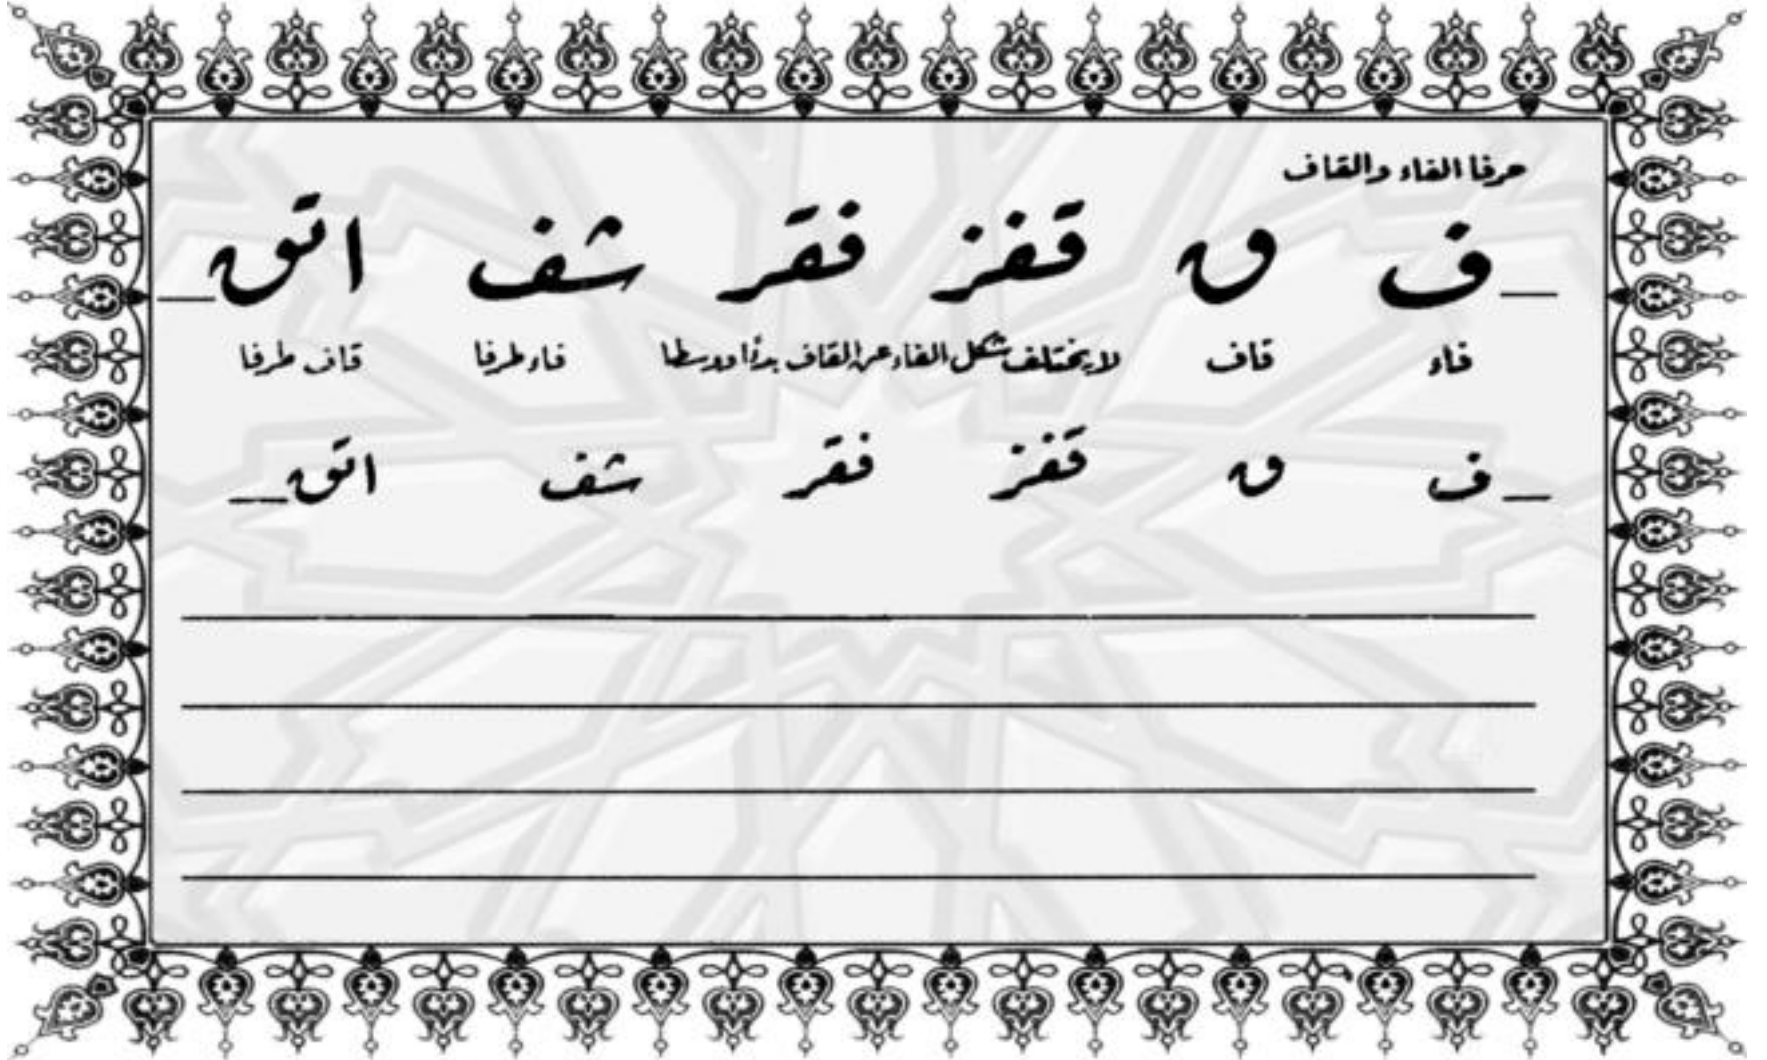 حرفا الفاء والقاف
ف ق قفز فقر شف اتق
فاء قاف لا يختلف شكل الفاء عن القاف بدأ او وسطا فاء طرفا قاف طرفا
ف ق قفز فقر شف اتق